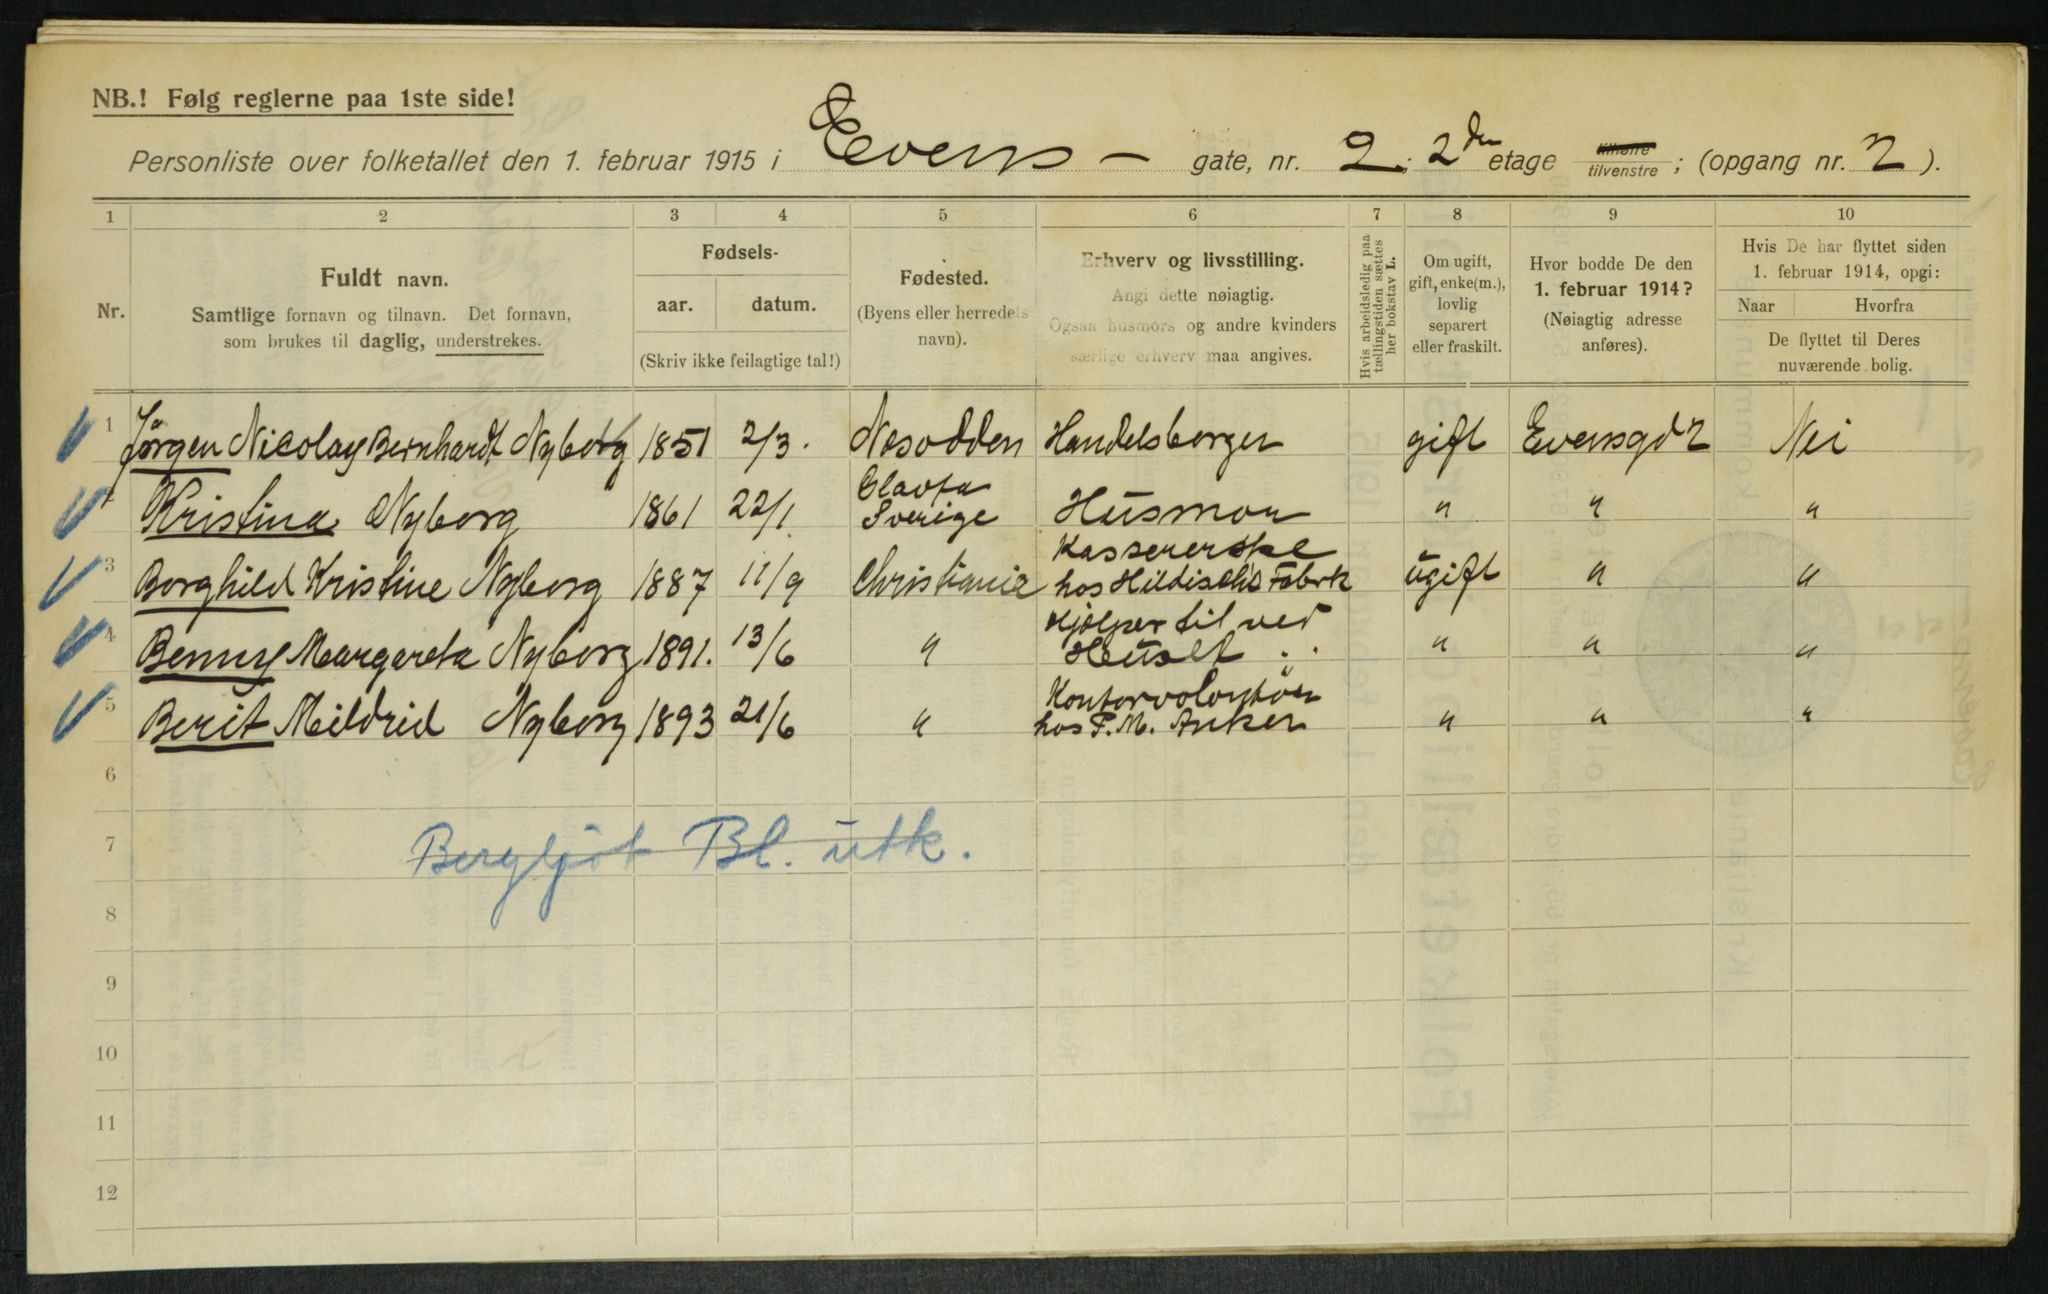 NB.! Følg reglerne paa 1ste side!
Personliste over folketallet den 1. februar 1915 i Evens - gate, nr. 2; 2den etage tilhøire/tilvenstre; (opgang nr. 2).
1 2 3 4 5 6 7 8 9 10
Nr.
Fuldt navn.
Samtlige fornavn og tilnavn. Det fornavn,
som brukes til daglig, understrekes.
Fødsels-
aar. datum.
(Skriv ikke feilagtige tal!)
Fødested.
(Byens eller herredets
navn).
Erhverv og livsstilling.
Angi dette nøiagtig.
Ogsaa husmors og andre kvinders
særlige erhverv maa angives.
Hvis arbeidsledig paa
tællingstiden sættes
her bokstav L.
Om ugift,
gift, enke(m.),
lovlig
separert
eller fraskilt.
Hvor bodde De den
1. februar 1914?
(Nøiagtig adresse
anføres).
Hvis De har flyttet siden
1. februar 1914, opgi:
Naar Hvorfra
De flyttet til Deres
nuværende bolig.
1 Jørgen Nicolay Bernhardt Nyborg 1851 2/3. Nesodden Handelsborger gift Evensgd 2 Nei
2 Kristina Nyborg 1861 22/1. Sverige Husmor " " "
3 Borghild Kristine Nyborg 1887 11/9 Christiania Kassererske
hos Fabrk ugift " "
4 Benny Margareta Nyborg 1891. 13/6 " Hjælper til ved
Huset " " "
5 Berit Mildrid Nyborg 1893 21/6 " Kontorvolontør
hos P. M. Anker " " "
6
7 Bergljot Bl. utk.
8
9
10
11
12